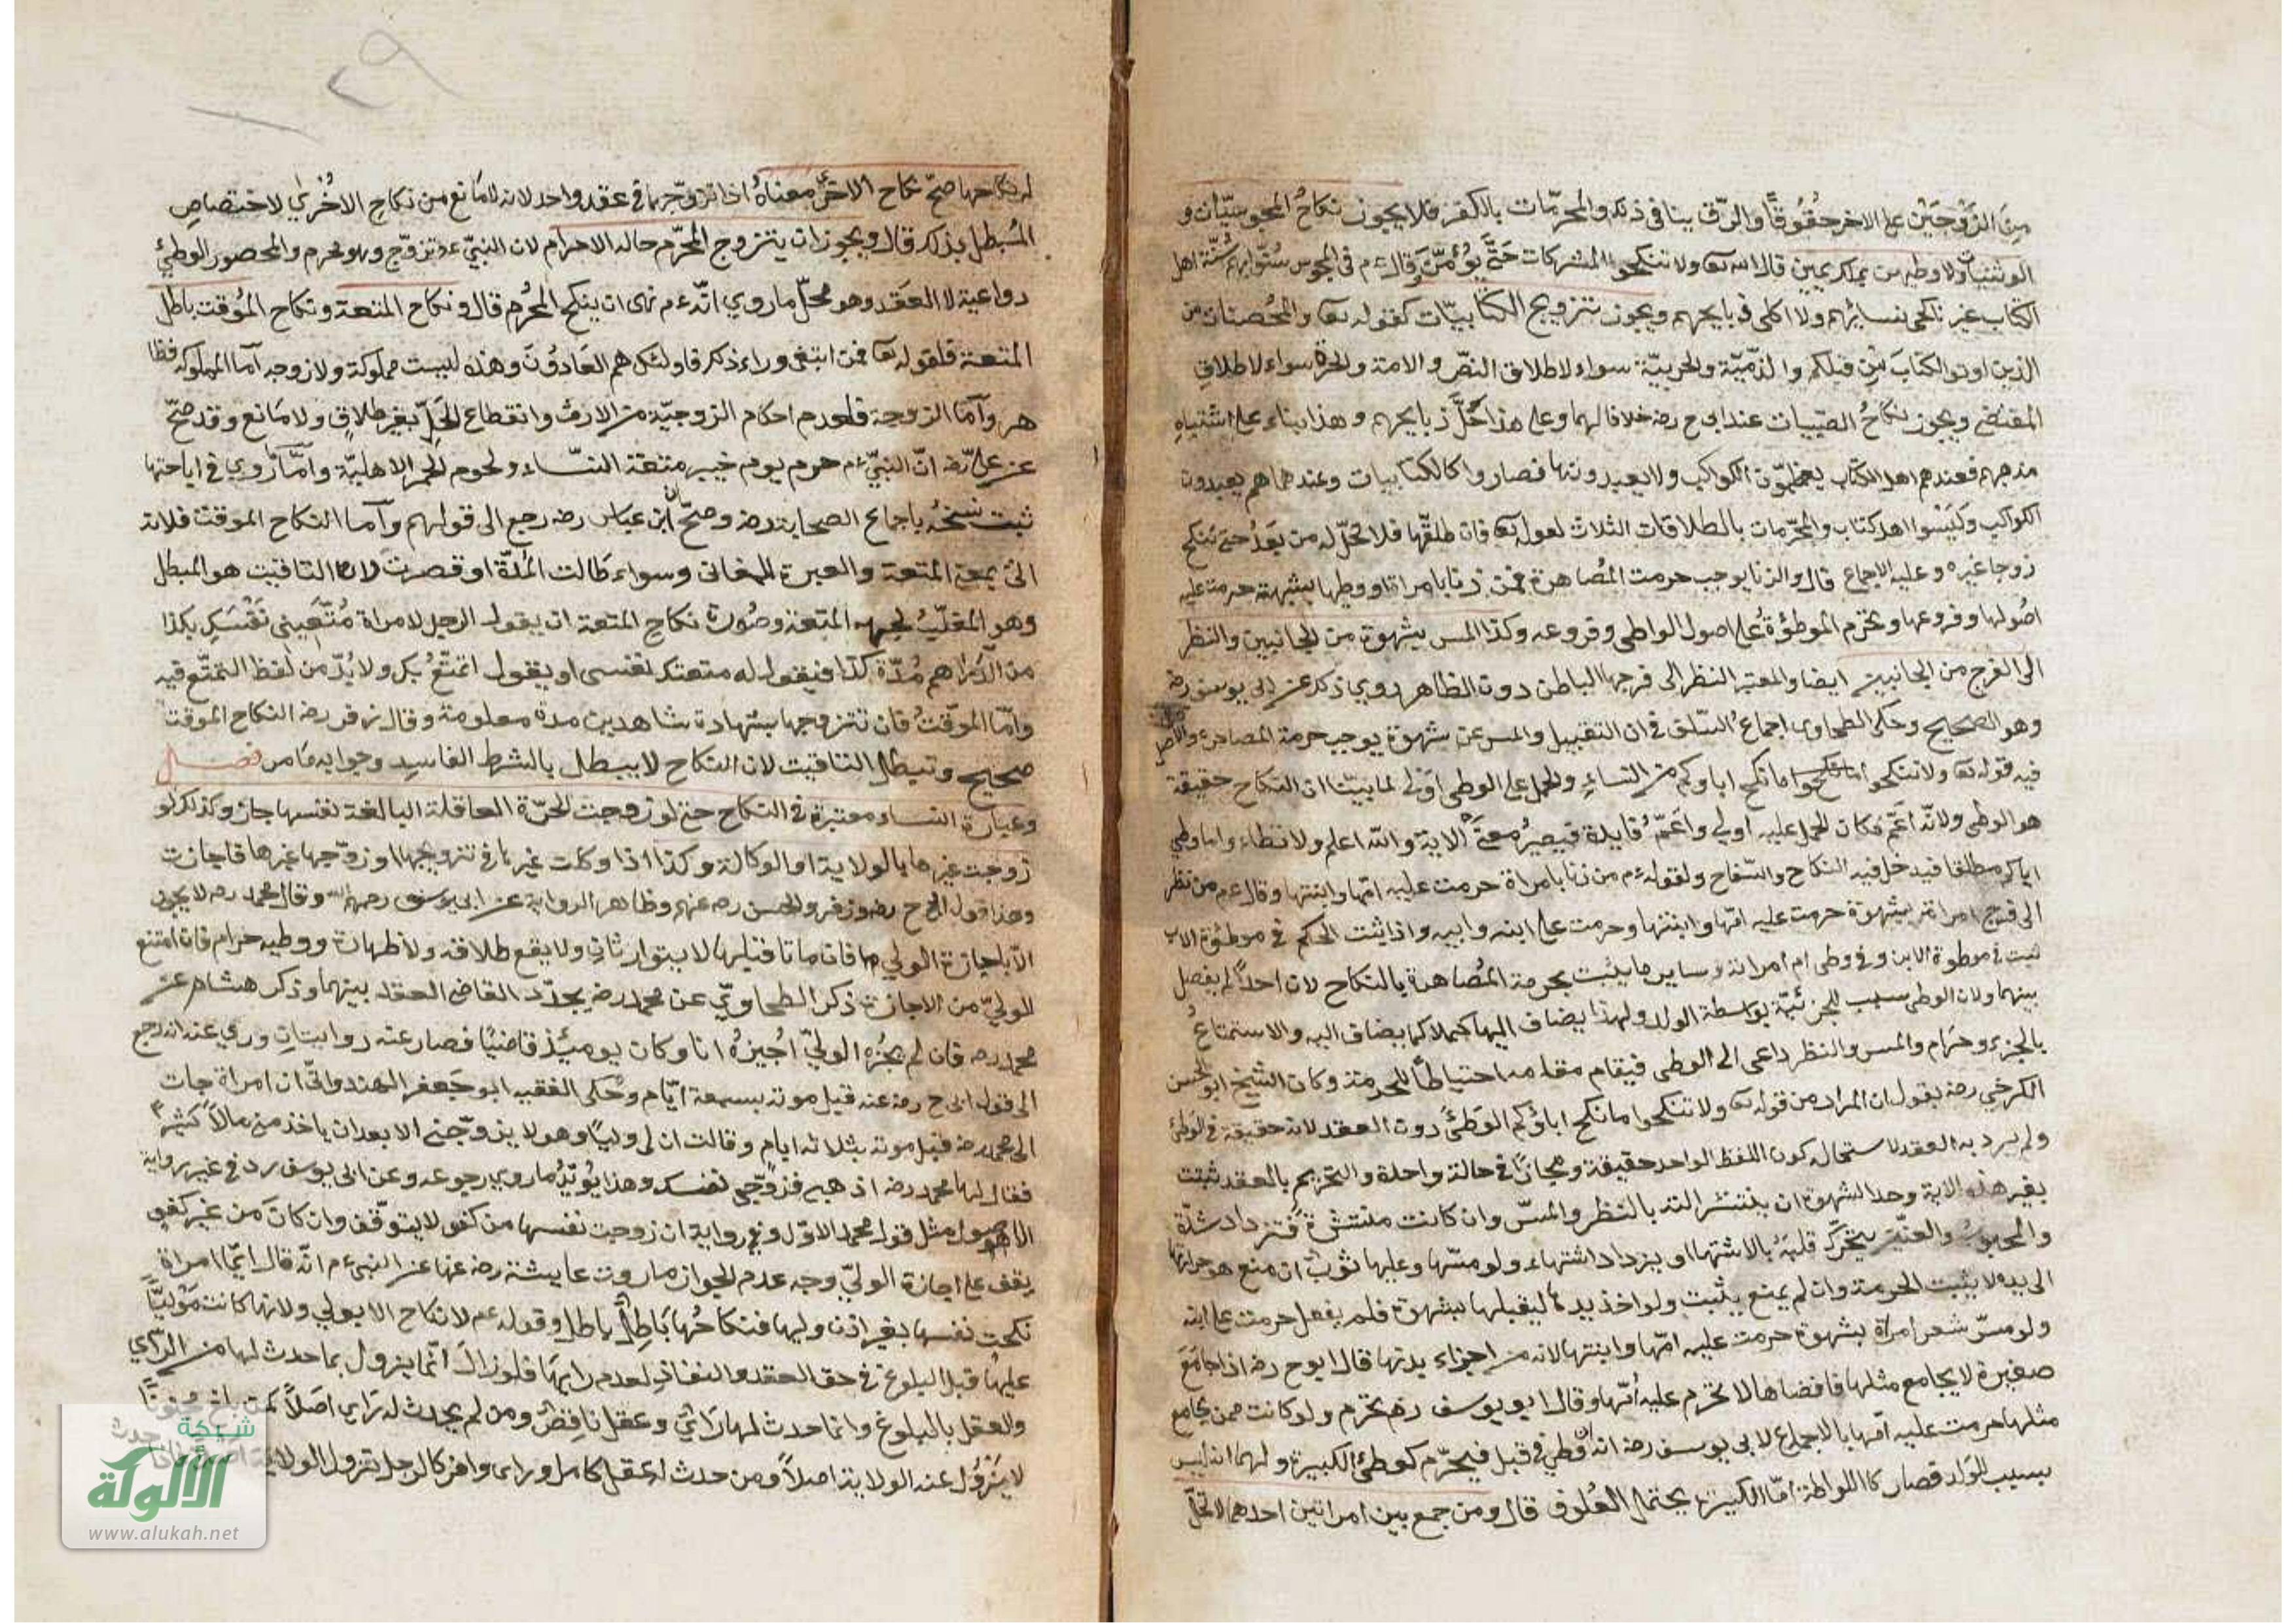 من الزوجين على الاخر حقوقاً والرق ينافي ذلك والمحرمات بالكفر فلا يجوز نكاح المجوسيات و
الوثنيات ولا وطيهن بملك يمين قال الله تعا ولا تنكحوا المشركات حتى يؤمن وقال ءم في المجوس سنوا بهم سنة اهل
الكتاب غير ناكحي نسائهم ولا اكلى ذبايحهم ويجوز تزويج الكتابيات كقوله تعا والمحصنات من
الذين اوتوا الكتاب من قبلكم والذمية والحربية سواء لاطلاق النص والامة والحرة سواء لاطلاق
المقتضي ويجوز نكاح الصبيات عند ابي ح رضه خلافا لهما وعلى هذا حل ذبايحهم وهذا بناء على اشتباه
مذهبهم فعندهم اهل الكتاب يعظمون الكواكب ولا يعبدونها فصاروا كالكتابيات وعندهما هم يعبدون
الكواكب وليسوا اهل كتاب والمحرمات بالطلاقات الثلاث لقوله تعا فان طلقها فلا تحل له من بعد حتى تنكح
زوجا غيره وعليه الاجماع قال والزنا يوجب حرمت المصاهرة فمن زنا بامراة او وطيها بشبهة حرمت عليه
اصولها وفروعها وتحرم الموطؤة على اصول الواطي وفروعه وكذا المس بشهوة من الجانبين والنظر
الى الفرج من الجانبين ايضا والمعتبر النظر الى فرجها الباطن دون الظاهر روي ذلك عن ابي يوسف رضه
وهو الصحيح وحكى الطحاوي اجماع السلف في ان التقبيل والمس عن شهوة يوجب حرمة المصاهرة والاصل
فيه قوله تعا ولا تنكحوا ما نكح اباوكم من النساء والحمل على الوطي اولى لما بينا ان النكاح حقيقة
هو الوطي ولانه اعم فكان الحمل عليه اولى واعم فايدة فيصير معنى الاية والله اعلم ولا تطاء واما وطي
اباكم مطلقا فيدخل فيه النكاح والسفاح ولقوله ءم من زنا بامراة حرمت عليه امها وابنتها وقال عم من نظر
الى فرج امراة بشهوة حرمت عليه امها وابنتها وحرمت على ابنه وابيه واذا ثبت الحكم في موطؤة الاب
ثبت في موطوة الابن وفي وطي ام امراته وساير ما يثبت بحرمة المصاهرة بالنكاح لان احداً لم يفصل
بينهما ولان الوطي سبب للجزئية بواسطة الولد ولهذا يضاف اليها كملا كما يضاف اليه والاستمتاع
بالجزء وحرام والمس والنظر داعى الى الوطي فيقام مقامه احتياطاً للحرمة وكان الشيخ ابو الحسن
الكرخي رضه يقول ان المراد من قوله تعا ولا تنكحوا ما نكح اباؤكم الوطئ دون العقد لانه حقيقة في الوطئ
ولم يرد به العقد لاستحالة كون اللفظ الواحد حقيقة ومجازاً في حالة واحدة والتحريم بالعقد ثبتت
بغير هذه الاية وحد الشهوة ان ينتشر الته بالنظر والمس وان كانت منتشرة فتزداد شدة
والمجبوب والعنين يتحرك قلبه بالاشتهاا او يزداد اشتهاء ولو مسها وعليها ثوب ان منع حرارتها
الى يده لا يثبت الحرمة وان لم يمنع يثبت ولو اخذ يدها ليقبلها بشهوة فلم يفعل حرمت على ابنه
ولو مس شعر امراة بشهوة حرمت عليه امها وابنتها لانه من اجزاء بدنها قال ابو ح رضه اذا جامع
صغيرة لا يجامع مثلها فافضاها لا تحرم عليه امها وقال ابو يوسف رضه تحرم ولو كانت ممن يجامع
مثلها حرمت عليه امها بالاجماع لابي يوسف رضه انه وطي في قبل فيحرم كوطئ الكبيرة ولهما انه ليس
بسبب للولد فصار كاللواطة اما الكبيرة يحتمل العلوق قال ومن جمع بين امراتين احدهما لا تحل
له نكاحها صح نكاح الاخرى معناه اذا تزوجهما في عقد واحد لانه لا مانع من نكاح الاخرى لاختصاص
المبطل بذلك قال ويجوز ان يتزوج المحرم حالة الاحرام لان النبي عم تزوج وهو محرم والمحصور الوطئ
دواعيه لا العقد وهو محل ما روي انه ءم نهى ان ينكح المحرم قال ونكاح المتعة ونكاح المؤقت باطل
المتعة فلقوله تعا فمن ابتغى وراء ذلك فاولئك هم العادون وهذه ليست مملوكة ولا زوجه اما المملوكه فظا
هر واما الزوجة فلعدم احكام الزوجية من الارث وانقطاع الحل بغير طلاق ولا مانع وقد صح
عن علي رضه ان النبي ءم حرم يوم خيبر متعة النساء ولحوم الحمر الاهلية واما ما روي في اباحتها
ثبت نسخه باجماع الصحابة رضه وصح ان ابن عباس رضه رجع الى قولهم واما النكاح الموقت فلانه
اتى بمعنى المتعة والعبرة للمعاني وسواء طالت المدة او قصرت لان التاقيت هو المبطل
وهو المغلب لجهة المتعة وصورة نكاح المتعة ان يقول الرجل لامراة متعيني نفسك بكذا
من الدراهم مدة كذا فيقول له متعتك نفسي او يقول اتمتع بك ولا بد من لفظ التمتع فيه
واما الموقت فان تتزوجها بشهادة شاهدين مدة معلومة وقال زفر رضه النكاح الموقت
صحيح وتبطل التاقيت لان النكاح لا يبطل بالشرط الفاسد وجوابه ما مر فصل
وعبارة النساء معتبرة في النكاح حتى لو زوجت الحرة العاقلة البالغة نفسها جاز وكذلك لو
زوجت غيرها بالولاية او الوكالة وكذا اذا وكلت غيرها في تزويجها او زوجها غيرها فاجازت
وهذا قول ابي ح رضه وزفر والحسن رضه عنهم وظاهر الرواية عن ابي يوسف رحمهم الله وقال محمد رحه لا يجوز
الا باجازة الولي فان ماتا قبلها لا يتوارثان ولا يقع طلاقه ولا ظهارة ووطيه حرام فان امتنع
الولي من الاجازة ذكر الطحاوي عن محمد رضه يجدد القاضي العقد بينهما وذكر هشام عن
محمد رحه فان لم يجزه الولي اجيزه انا وكان يومئذ قاضياً فصار عنه روايتان وروي عنه انه رجع
الى قول ابي ح رضه عنه قبل موته بسبعة ايام وحكى الفقيه ابو جعفر الهندواني ان امراة جات
الى محمد رضه قبل موته بثلاثه ايام وقالت ان لي ولياً وهو لا يزوجني الا بعد ان ياخذ مني مالاً كثيراً
فقال لها محمد رضه اذهبي فزوجي نفسك وهذا يؤيد ما روي رجوعه وعن ابي يوسف رد في غير رواية
الاصول مثل قول محمد الاول وفي رواية ان زوجت نفسها من كفو لا يتوقف وان كان من غير كفو
يقف على اجازة الولي وجه عدم الجواز ما روت عايشة رضه عنها عن النبي ءم انه قال ايما امراة
نكحت نفسها بغير اذن وليها فنكاحها باطل باطل وقوله عم لا نكاح الا بولي ولانها كانت مولياً
عليها قبل البلوغ في حق العقد والنفاذ لعدم رايها فلو زال انما يزول بما حدث لها من الراي
والعقل بالبلوغ وانما حدث لها راي وعقل ناقص ومن لم يحدث له راي اصلاً كمن بلغ مجنوناً
لا يزول عنه الولاية اصلاً ومن حدث له عقل كامل وراى وافر كالرجل تزول الولاية
شبكة
الألوكة
www.alukah.net